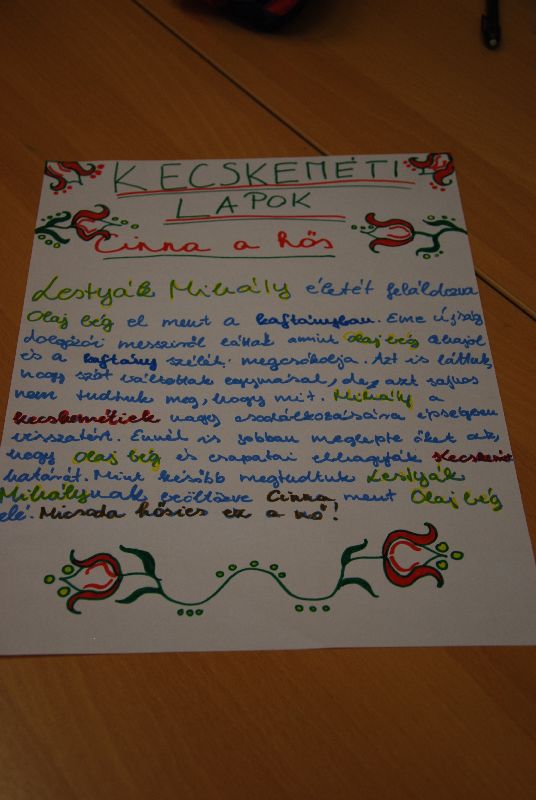 KECSKEMÉTI
LAPOK
Cinna a hős
Lestyák Mihály életét feláldozva
Olaj bég el ment a kaftányban. Eme újság
dolgozói messziről látták amint Olaj bég lehajol
és a kaftány szélét megcsókolja. Azt is láttuk,
hogy szót váltottak egymással, de, azt sajnos
nem tudtuk meg, hogy mit. Mihály a
kecskemétiek nagy csodálkozásásira épségben
visszatért. Ennél is jobban meglepte őket az,
hogy Olaj bég és csapatai elhagyták Kecskemét
határát. Mint később megtudtuk Lestyák
Mihálynak beöltözve Cinna ment Olaj bég
elé. Micsoda hősies ez a nő!